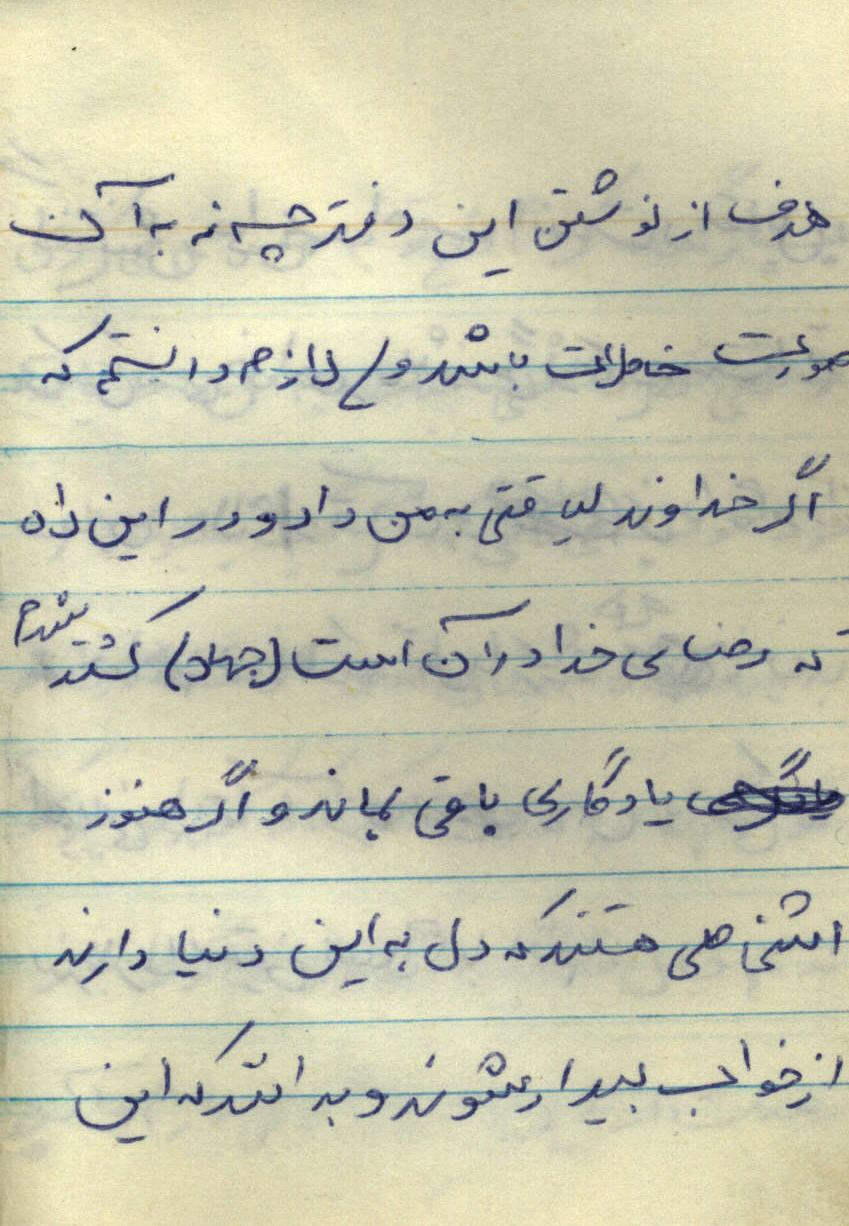 هدف از نوشتن این دفترچه نه به آن
صورت خاطرات باشد و لازم دانستم که
اگر خداوند لیاقتی به من داد و در این راه
که رضای خدا در آن است (جهاد) کشته شدم
یادگاری باقی بماند و اگر هنوز
اشخاصی هستند که دل به این دنیا دارند
از خواب بیدار شوند و بدانند که این